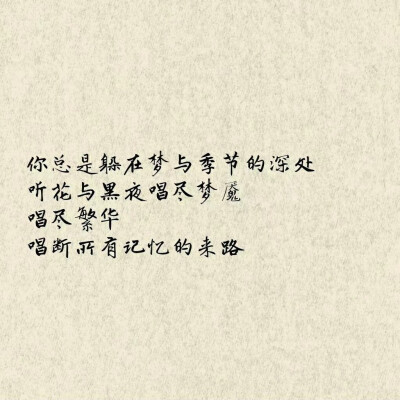 你总是躲在梦与季节的深处
听花与黑夜唱尽梦魇
唱尽繁华
唱断所有记忆的来路